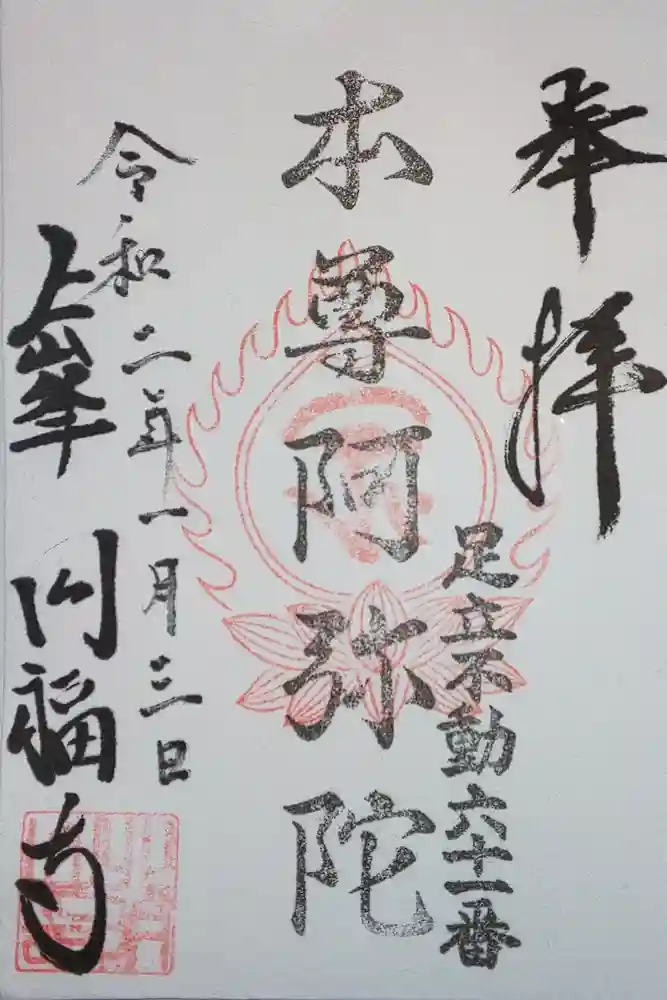 奉拝
足立不動六十一番
本尊阿弥陀
令和二年一月三日
上峯 円福寺